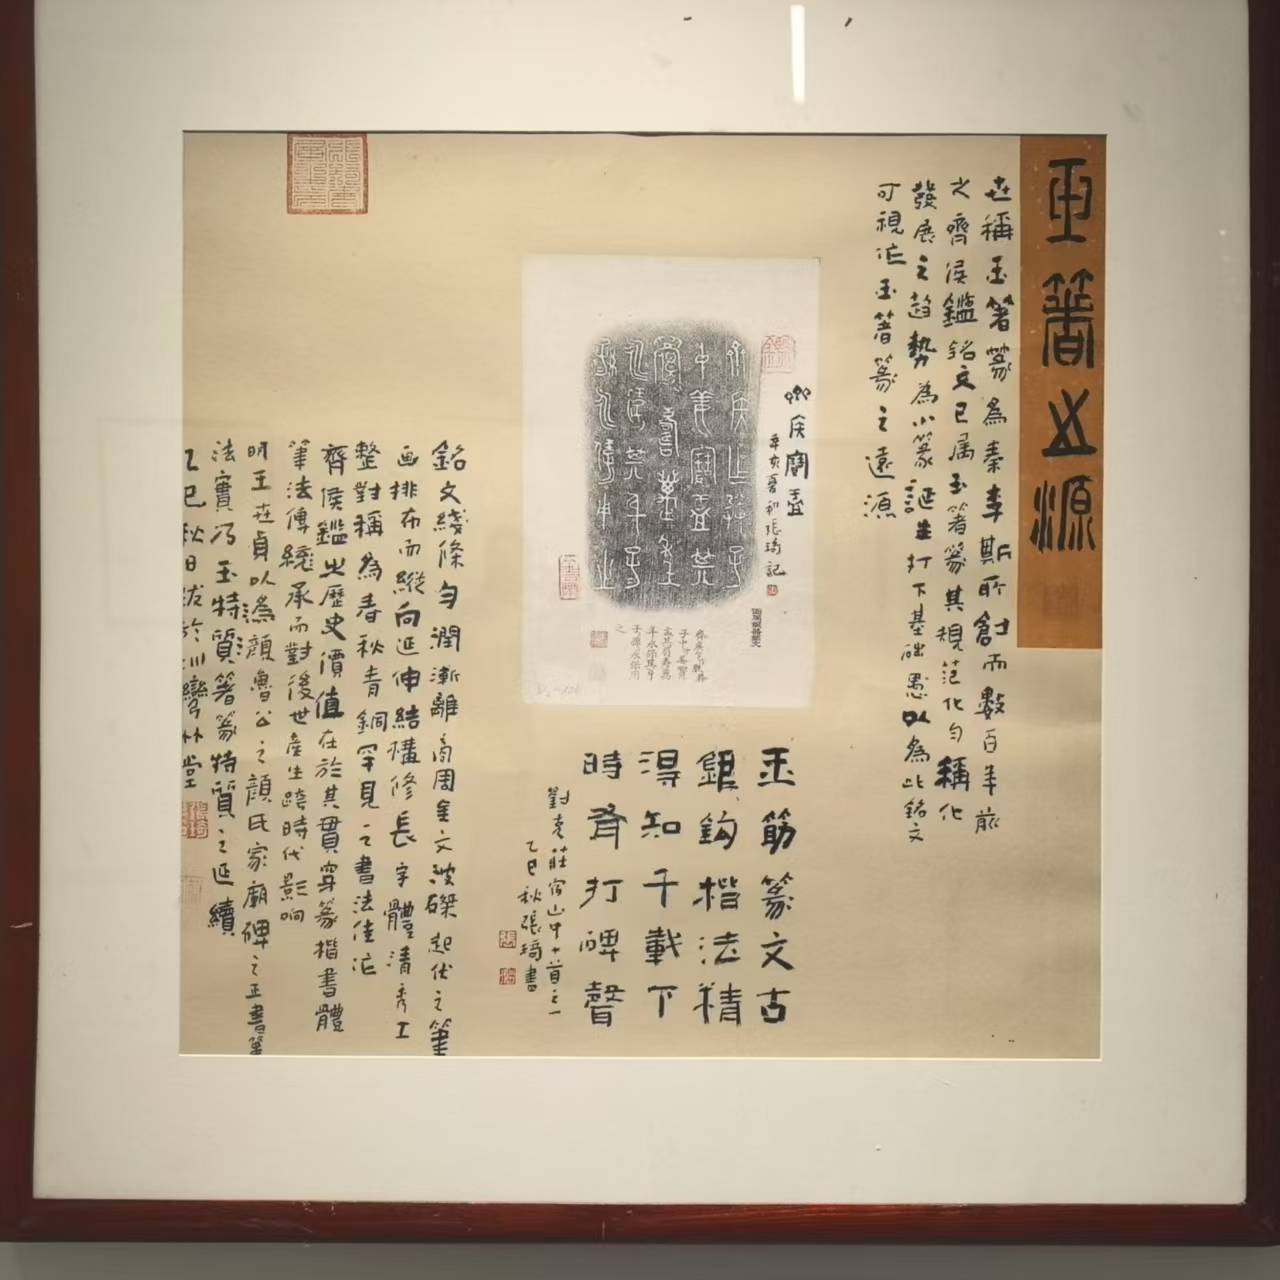 玉箸之源
世稱玉箸篆為秦李斯所創而數百年前
之齊侯鑑銘文已属玉箸篆其規范化匀稱化
發展之趋勢為小篆誕生打下基础愚以為此銘文
可視作玉箸篆之遠源
齊侯寶盂
辛亥夏初張琦記
玉筋篆文古
銀鈎楷法精
得知千載下
時有打碑聲
對老莊宿山中十首之一
乙巳秋張琦書
銘文綫條匀潤漸離商周金文波磔起伏之筆
画排布而縱向延伸結構修長字體清秀工
整對稱為春秋青銅罕見之書法佳作
齊侯鑑出歷史價值在於其貫穿篆楷書體
筆法傳統承而對後世産生跨時代影响
明王世貞以為顔魯公之顔氏家廟碑之正書筆
法實乃玉特質箸篆特質之延續
乙巳秋日跋於川灣竹堂